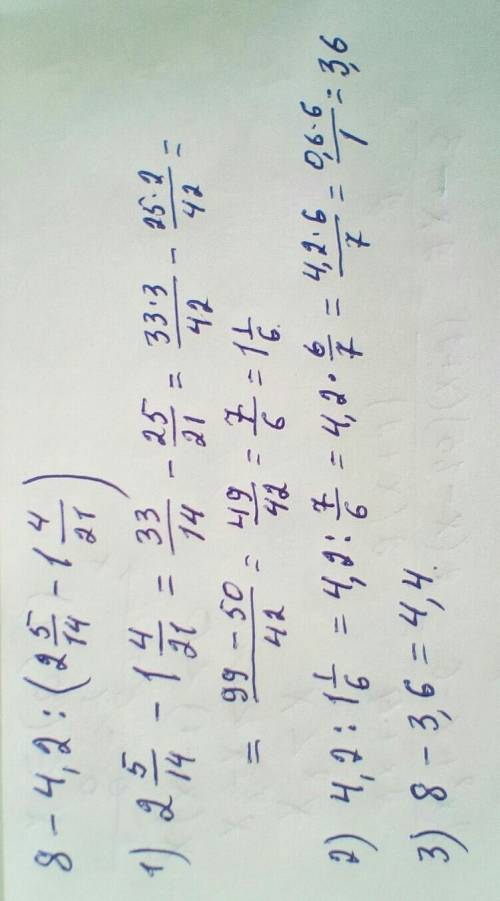 8 - 4,2 : (2 5/14 - 1 4/21)
1) 2 5/14 - 1 4/21 = 33/14 - 25/21 = 33·3/42 - 25·2/42 =
= 99-50/42 = 49/42 = 7/6 = 1 1/6.
2) 4,2 : 1 1/6 = 4,2 : 7/6 = 4,2 · 6/7 = 4,2·6/7 = 0,6·6/1 = 3,6
3) 8 - 3,6 = 4,4.